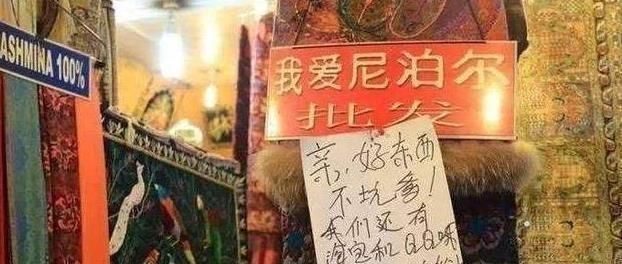 ASHMINA 100%
我爱尼泊尔
批发
亲,好东西
不坑爹!
我们还有
淘宝和QQ咪